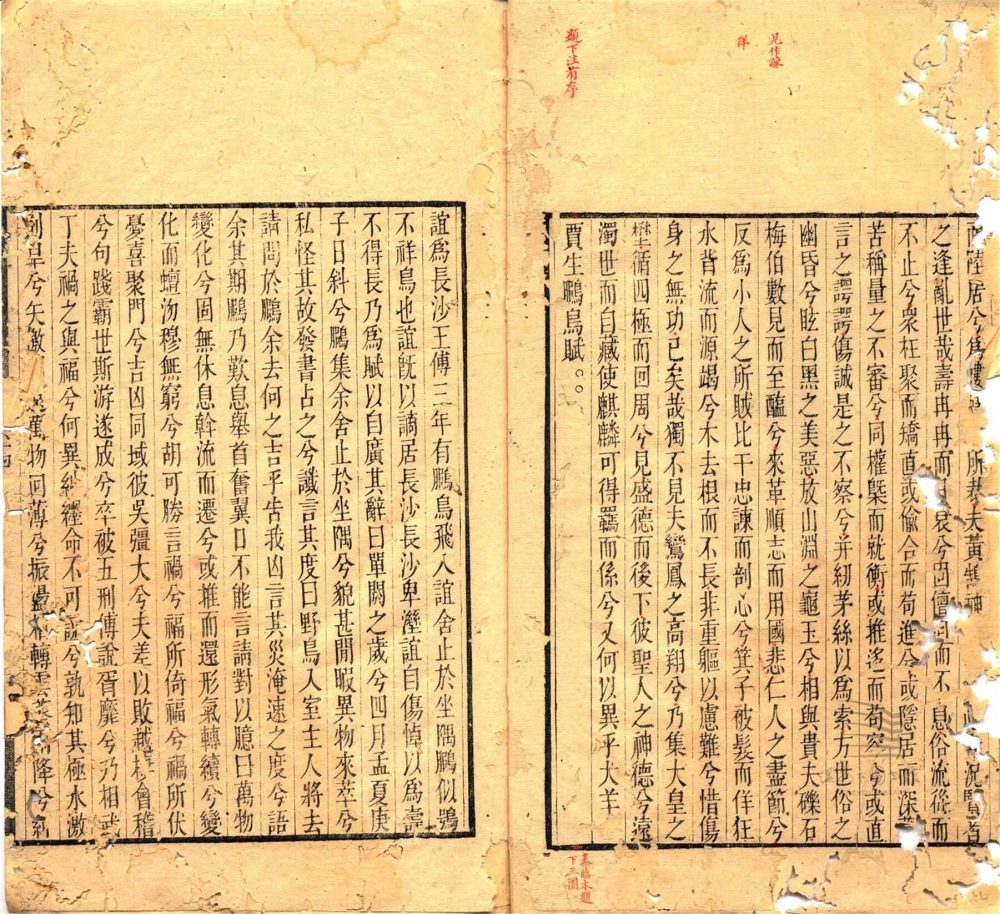 見佯誅
佯
題下注有序
陸居兮爲螻
所恭夫黃鵠神
況賢者
之逢亂世哉壽冉冉而日衰兮固儃回而不息俗流從而
不止兮衆枉聚而矯直或偷合而苟進兮或隱居而深藏
苦稱量之不審兮同權槩而就衡或推迻而苟容兮或直
言之諤諤傷誠是之不察兮并紉茅絲以爲索方世俗之
幽昏兮眩白黑之美惡放山淵之龜玉兮相與貴夫礫石
梅伯數見而至醢兮來革順志而用國悲仁人之盡節兮
反爲小人之所賊比干忠諫而剖心兮箕子被髮而佯狂
水背流而源竭兮木去根而不長非重軀以慮難兮惜傷
身之無功已矣哉獨不見夫鸞鳳之高翔兮乃集大皇之
壄循四極而回周兮見盛德而後下彼聖人之神德兮遠
濁世而自藏使麒麟可得羈而係兮又何以異乎犬羊
賈生鵩鳥賦。。
下三圈
誼爲長沙王傅三年有鵩鳥飛入誼舍止於坐隅鵩似鴞
不祥鳥也誼旣以謫居長沙長沙卑溼誼自傷悼以爲壽
不得長乃爲賦以自廣其辭曰單閼之歲兮四月孟夏庚
子日斜兮鵩集余舍止於坐隅兮貌甚閒暇異物來萃兮
私怪其故發書占之兮讖言其度曰野鳥入室主人將去
請問於鵩余去何之吉乎告我凶言其災淹速之度兮語
余其期鵩乃歎息舉首奮翼口不能言請對以臆曰萬物
變化兮固無休息斡流而遷兮或推而還形氣轉續兮變
化而蟺沕穆無窮兮胡可勝言禍兮福所倚福兮禍所伏
憂喜聚門兮吉凶同域彼吳彊大兮夫差以敗越棲會稽
兮句踐霸世斯游遂成兮卒被五刑傅說胥靡兮乃相武
丁夫禍之與福兮何異糾纆命不可說兮孰知其極水激
則旱兮矢激 萬物回薄兮振盪相轉雲蒸 降兮糾